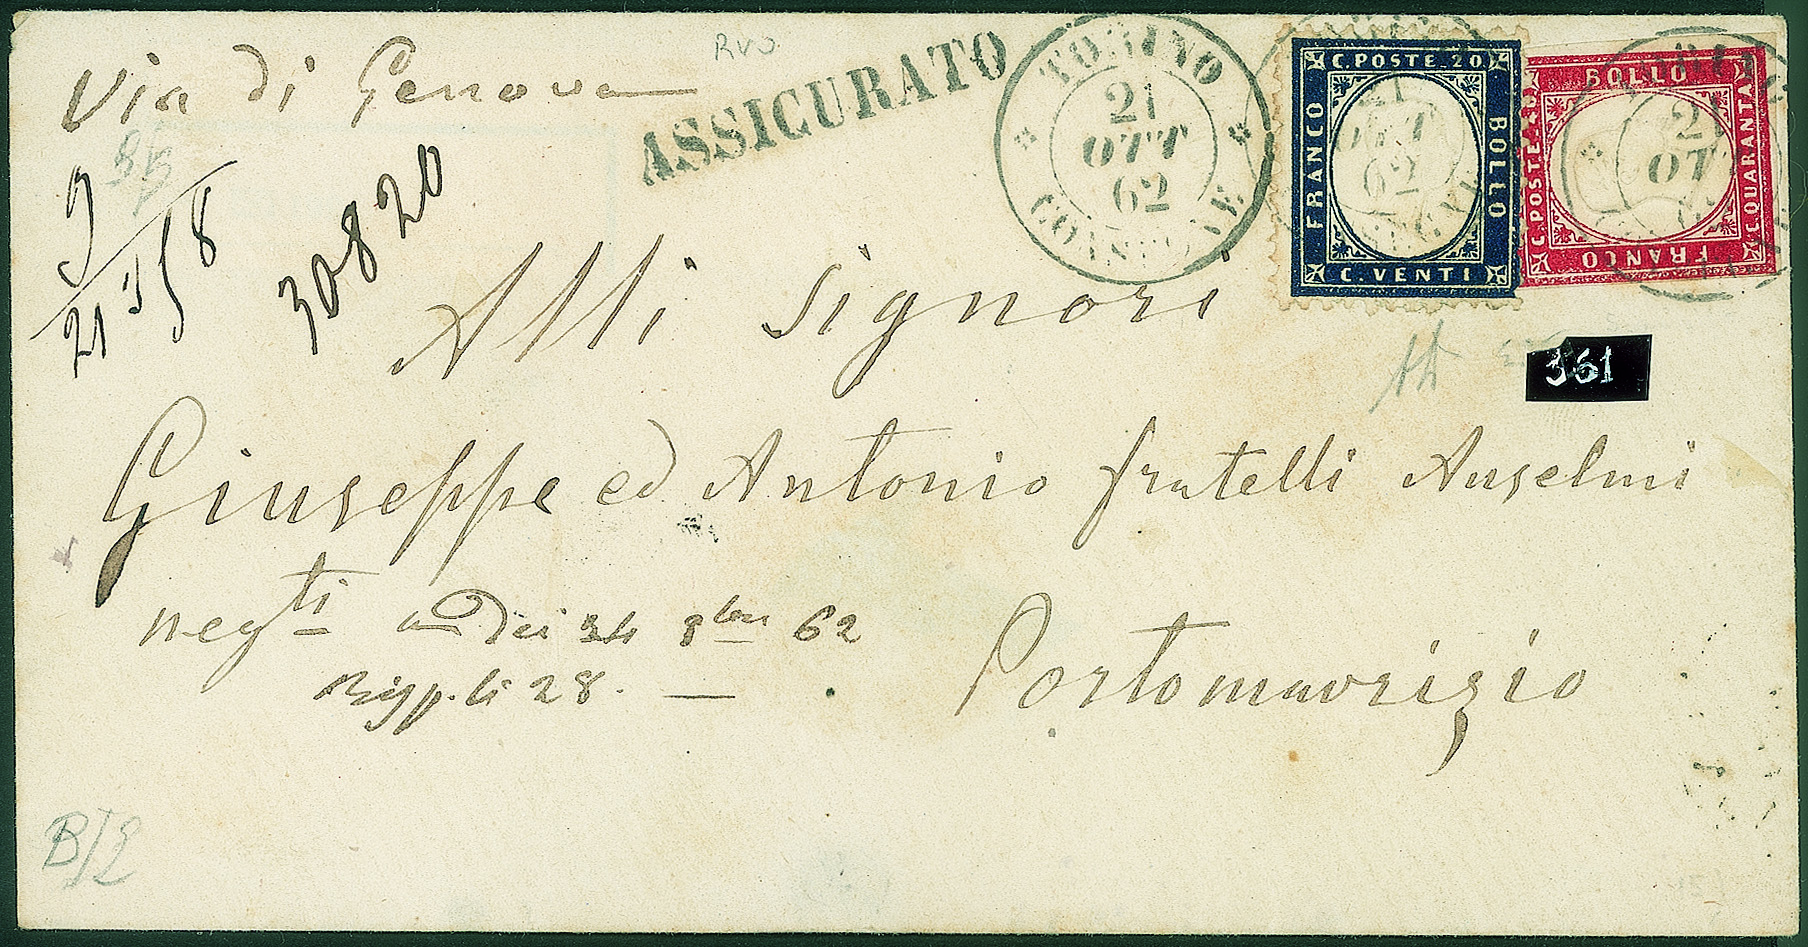 Via di Genova
RVO.
ASSICURATO
TORINO
21
OTT
62
CONSEGNE
C. POSTE. 20
FRANCO
BOLLO
C. VENTI
21
OTT
62
BOLLO
C. POSTE. 40
C. QUARANTA
FRANCO
21
OT
9
21
58
30820
361
Alli Signori
Giuseppe ed Antonio fratelli Anselmi
negti 24 8bre 62
Portomaurizio
li 28.